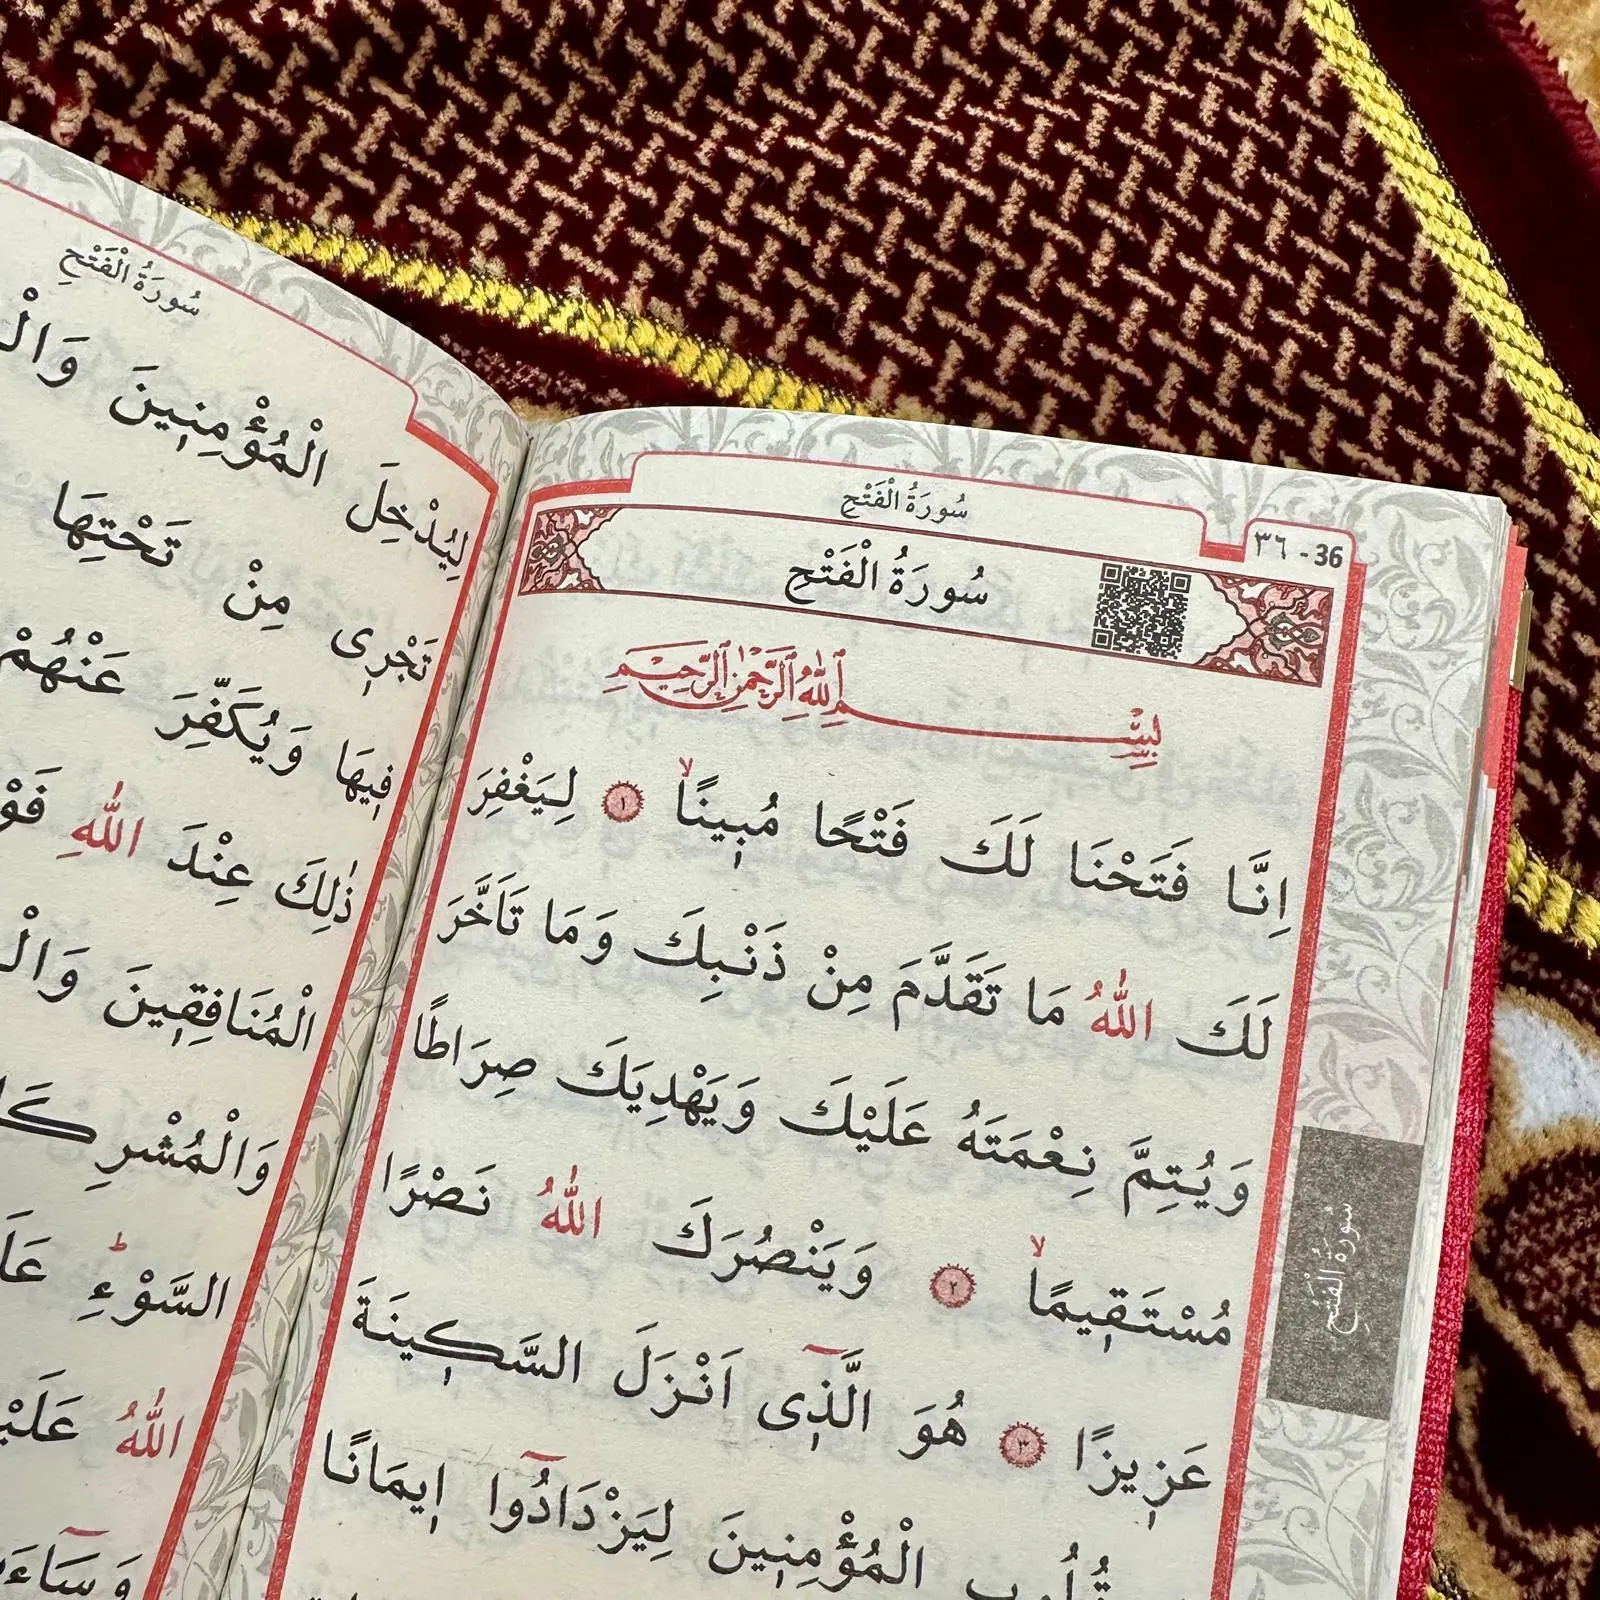 سُورَةُ الْفَتْحِ
٣٦ - 36
سُورَةُ الْفَتْحِ
بِسْمِ اللّٰهِ الرَّحْمٰنِ الرَّحِيمِ
اِنَّا فَتَحْنَا لَكَ فَتْحًا مُبِينًاۙ ١ لِيَغْفِرَ
لَكَ اللّٰهُ مَا تَقَدَّمَ مِنْ ذَنْبِكَ وَمَا تَاَخَّرَ
وَيُتِمَّ نِعْمَتَهُ عَلَيْكَ وَيَهْدِيَكَ صِرَاطًا
مُسْتَقِيمًاۙ ٢ وَيَنْصُرَكَ اللّٰهُ نَصْرًا
عَزِيزًا ٣ هُوَ الَّذِٓى اَنْزَلَ السَّكِينَةَ
قُلُوبِ الْمُؤْمِنِينَ لِيَزْدَادُٓوا اِيمَانًا
سُورَةُ الْفَتْحِ
سُورَةُ الْفَتْحِ
لِيُدْخِلَ الْمُؤْمِنِينَ
تَجْرِى مِنْ تَحْتِهَا
فِيهَا وَيُكَفِّرَ عَنْهُمْ
ذٰلِكَ عِنْدَ اللّٰهِ
الْمُنَافِقِينَ
السَّوْءِۜ
اللّٰهُ